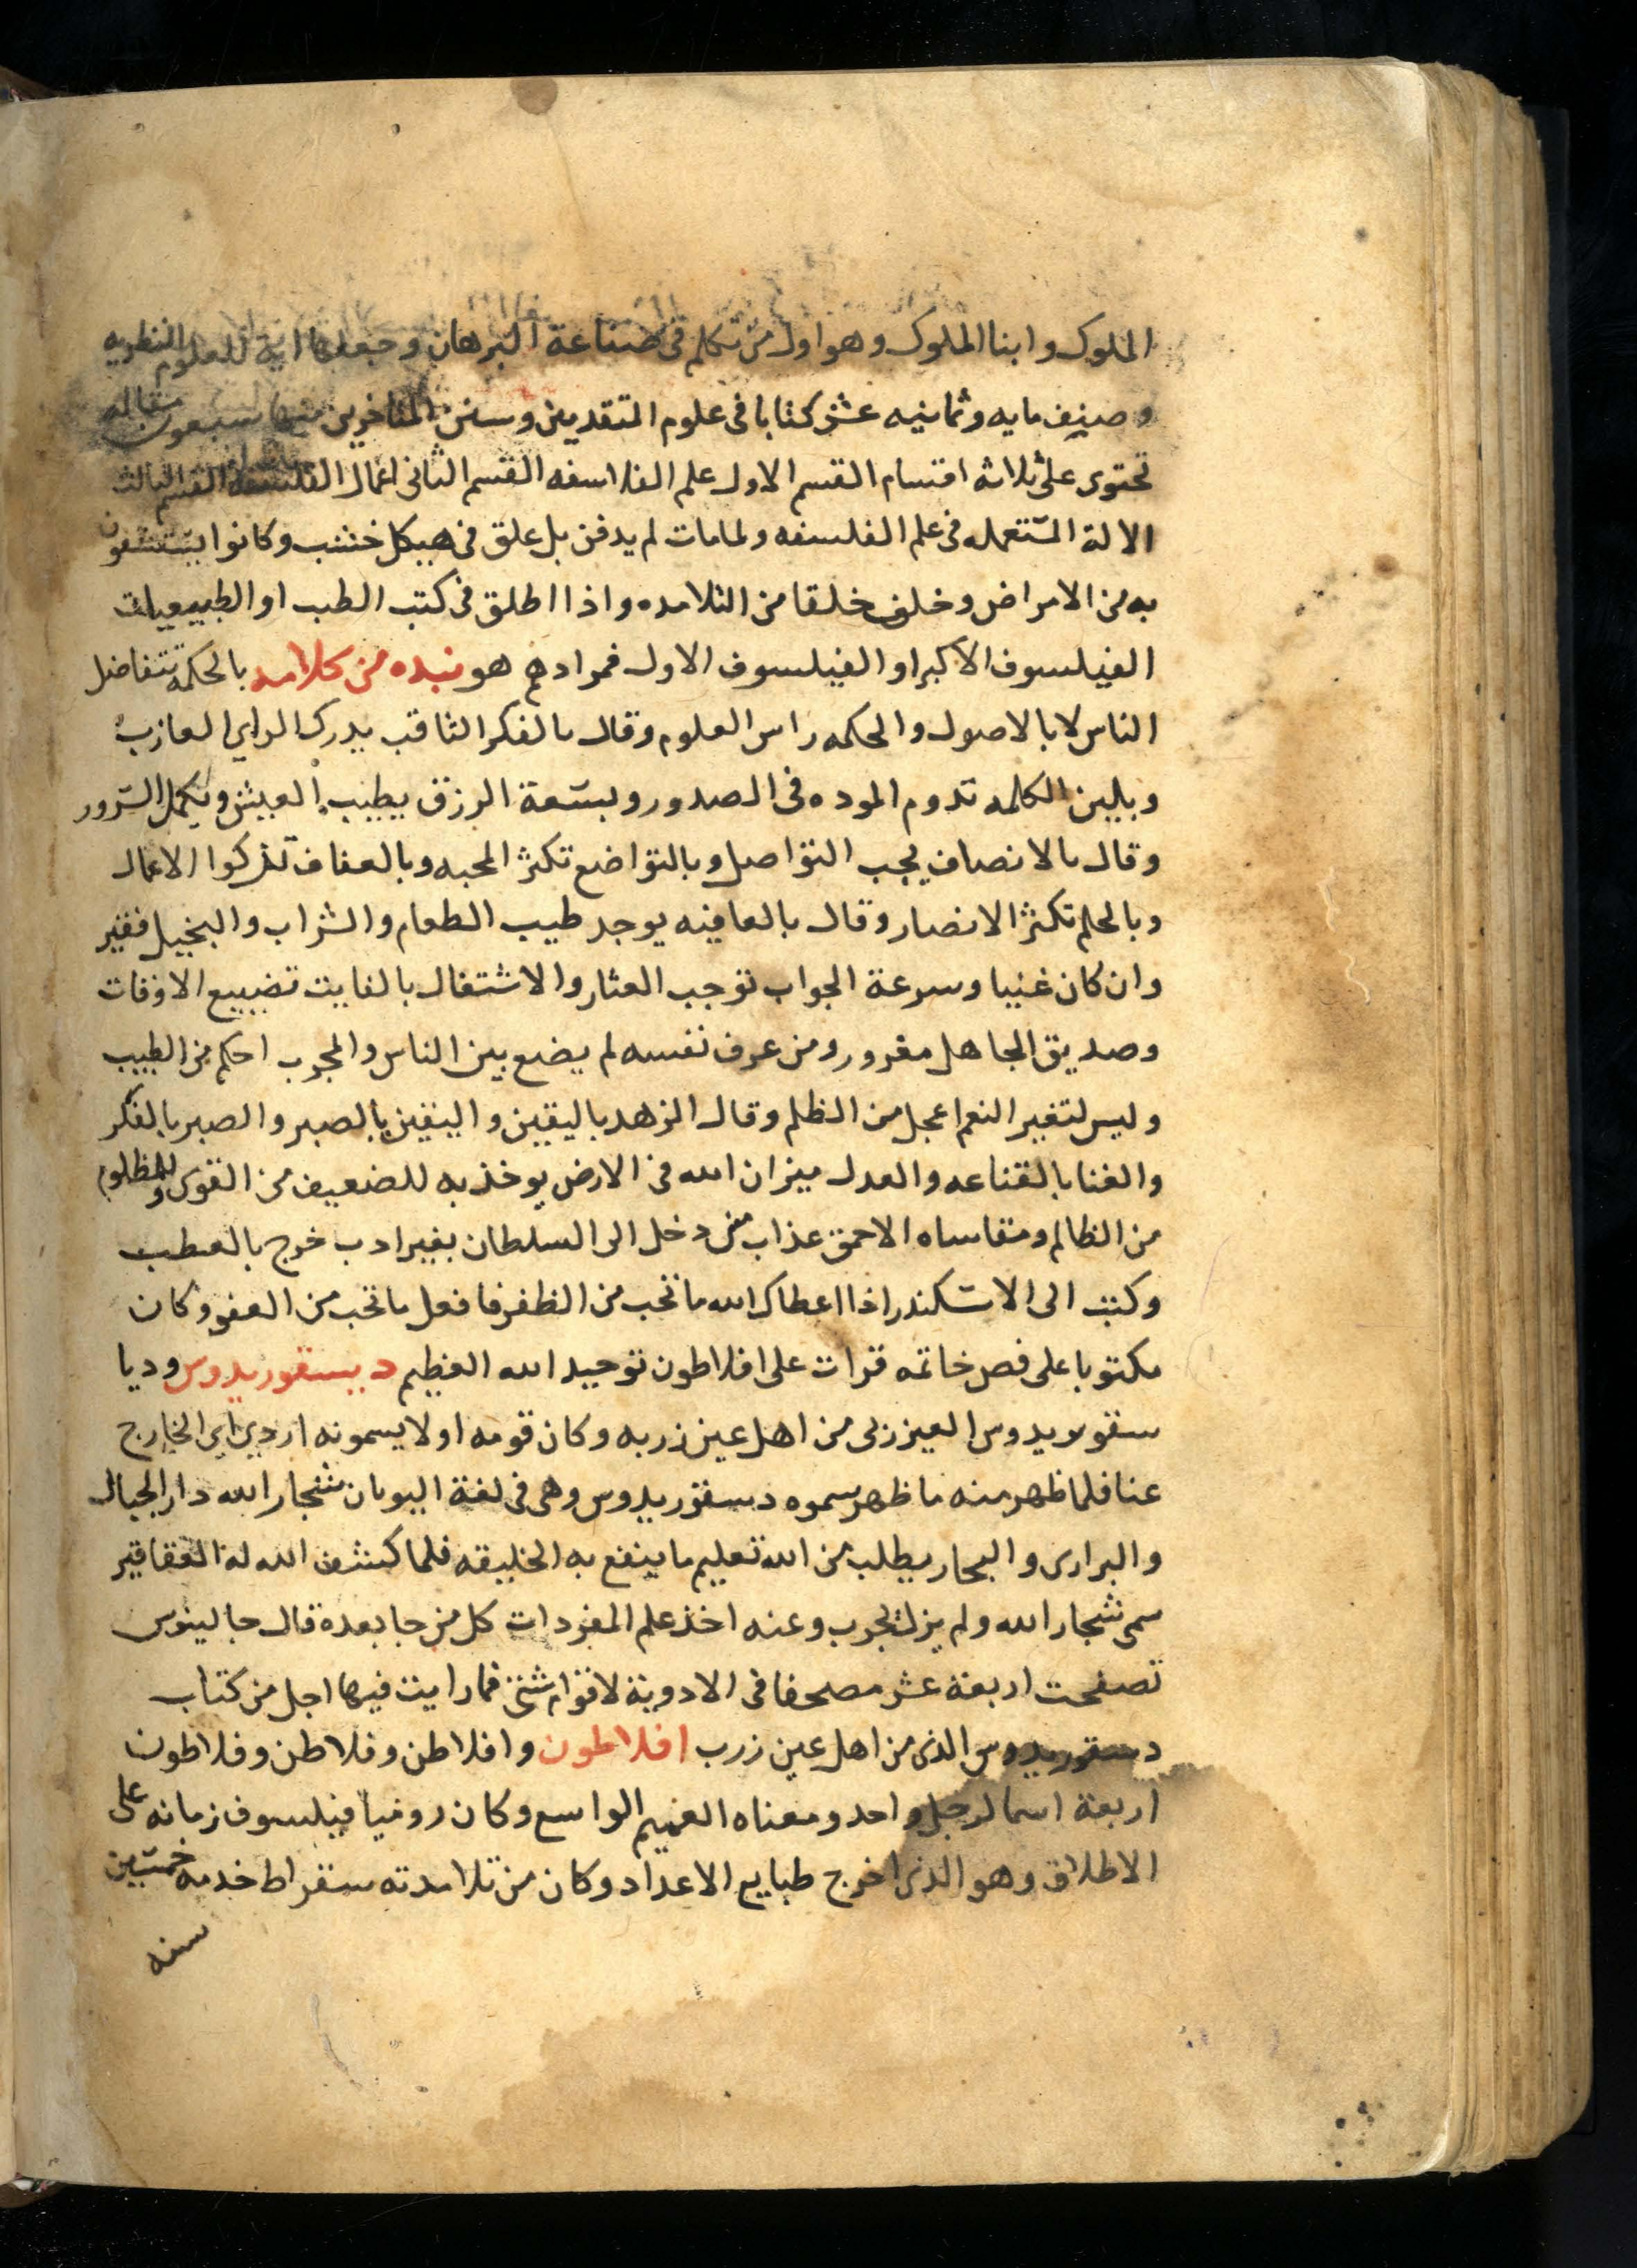 الملوك وابنا الملوك وهو اول من تكلم فى صناعة البرهان وجعلها الة للعلوم النظريه
وصنف مايه وثمانيه عشر كتابا فى علوم المتقدمين وسنن المتاخرين منها سبعون مقاله
تحتوى على ثلاثه اقسام القسم الاول علم الفلاسفه القسم الثانى اعمال الفلسفه القسم الثالث
الالة المستعمله فى علم الفلسفه ولما مات لم يدفن بل علق فى هيكل خشب وكانوا يستشفون
به من الامراض وخلف خلقا من التلامده واذا اطلق فى كتب الطب او الطبيعيات
الفيلسوف الاكبر او الفيلسوف الاول فمرادهم هو نبده من كلامه بالحكمة تتفاضل
الناس لا بالاصول والحكمه راس العلوم وقال بالفكر الثاقب يدرك الراي العازب
وبلين الكلمه تدوم الموده فى الصدور وبسعة الرزق يطيب العيش ويكمل السرور
وقال بالانصاف يجب التواصل وبالتواضع تكثر المحبه وبالعفاف تزكوا الاعمال
وبالحلم تكثر الانصار وقال بالعافيه يوجد طيب الطعام والشراب والبخيل فقير
وان كان غنيا وسرعة الجواب توجب العثار والاشتغال بالفايت تضييع الاوقات
وصديق الجاهل مغرور ومن عرف نفسه لم يضع بين الناس والمجرب احكم من الطبيب
وليس لتغير النعم اعجل من الظلم وقال الزهد باليقين واليقين بالصبر والصبر بالفكر
والغنا بالقناعه والعدل ميزان الله فى الارض يوخذ به للضعيف من القوى وللمظلوم
من الظالم ومقاساه الاحمق عذاب من دخل الى السلطان بغير ادب خرج بالعطب
وكتب الى الاسكندر اذا اعطاك الله ما تحب من الظفر فافعل ما تحب من العفو وكان
مكتوبا على فص خاتمه قرات على افلاطون توحيد الله العظيم ديسقوريدوس وديا
سقوريدوس العين زربى من اهل عين زربه وكان قومه اولا يسمونه ازدي اي الخارج
عنا فلما ظهر منه ما ظهر سموه دسقوريدوس وهى فى لغة اليونان شجار الله دار الجبال
والبرارى والبحار يطلب من الله تعليم ما ينفع به الخليقه فلما كشف الله له العقاقير
سمى شجار الله ولم يزل يجرب وعنه اخذ علم المفردات كل من جا بعده قال جالينوس
تصفحت اربعة عشر مصحفا فى الادوية لاقوام شتى فما رايت فيها اجل من كتاب
دسقوريدوس الذى من اهل عين زرب افلاطون وافلاطن وفلاطن وفلاطون
اربعة اسما لرجل واحد ومعناه العميم الواسع وكان روميا فيلسوف زمانه على
الاطلاق وهو الذى اخرج طبايع الاعداد وكان من تلامدته سقراط خدمه خمسين
سنه